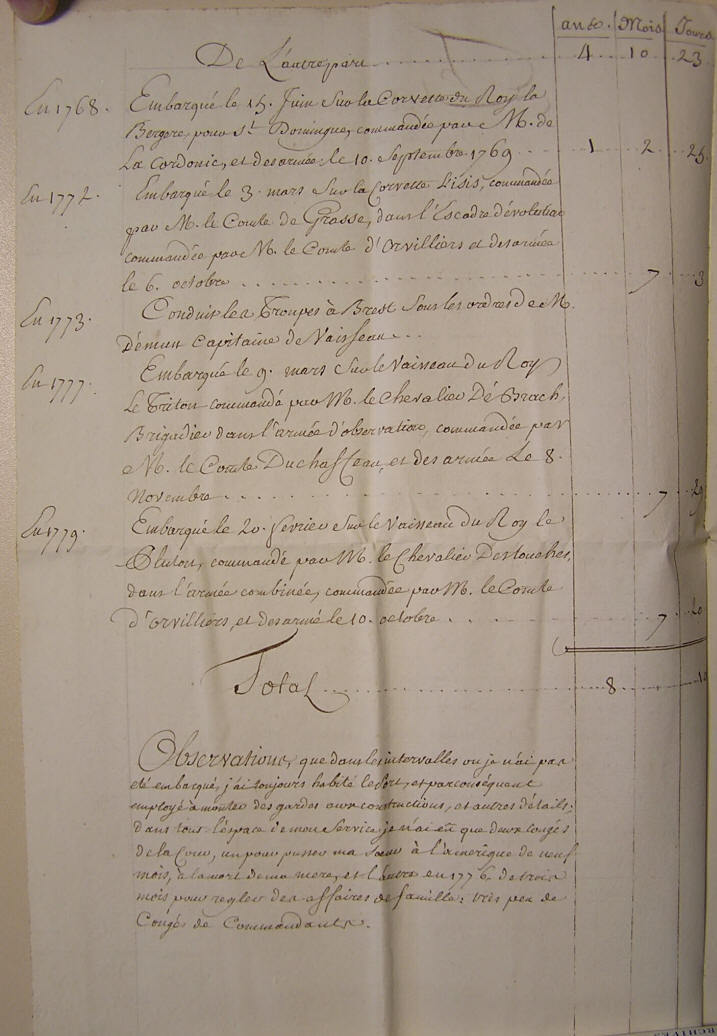 ans. Mois Jours
De L'autre part 4 10 23
En 1768. Embarqué le 15. Juin Sur la Corvette du Roy la
Bergere, pour St. Domingue, commandée par M. de
La Cardonie, et desarmée le 10. Septembre 1769 1 2 25
En 1772. Embarqué le 3. mars Sur la Corvette L'isis, commandée
par M. le Comte de Grasse, dans l'Escadre d'évolution
commandée par M. le Comte d'Orvilliers et desarmée
le 6. octobre 7 3
En 1773. Conduit les Troupes à Brest Sous les ordres de M.
Capitaine de Vaisseau
En 1777. Embarqué le 9. mars Sur le Vaisseau du Roy
Le Triton commandé par M. le Chevalier Dé Brach,
Brigadier dans l'armée d'observation, commandée par
M. le Comte Duchaffeau, et desarmée Le 8.
Novembre 7 29
En 1779. Embarqué le 20. fevrier Sur le Vaisseau du Roy le
Pluton, commandé par M. le Chevalier Destouches,
dans l'armée combinée, commandée par M. le Comte
d'orvilliers, et desarmé le 10. octobre 7 20
Total 8
Observations, que dans les intervalles ou je n'ai pas
eté embarqué, j'ai toujours habité le Port, et par conséquent
employé à monter des gardes aux constructions, et autres détails;
dans tous l'espace de mon Service je n'ai eu que deux congés
de la Cour, un pour passer ma Soeur à l'amerique de neuf
mois, à la mort de ma mere, et l'autre en 1776 de trois
mois pour regler des affaires de famille: très peu de
Congés de Commandants.